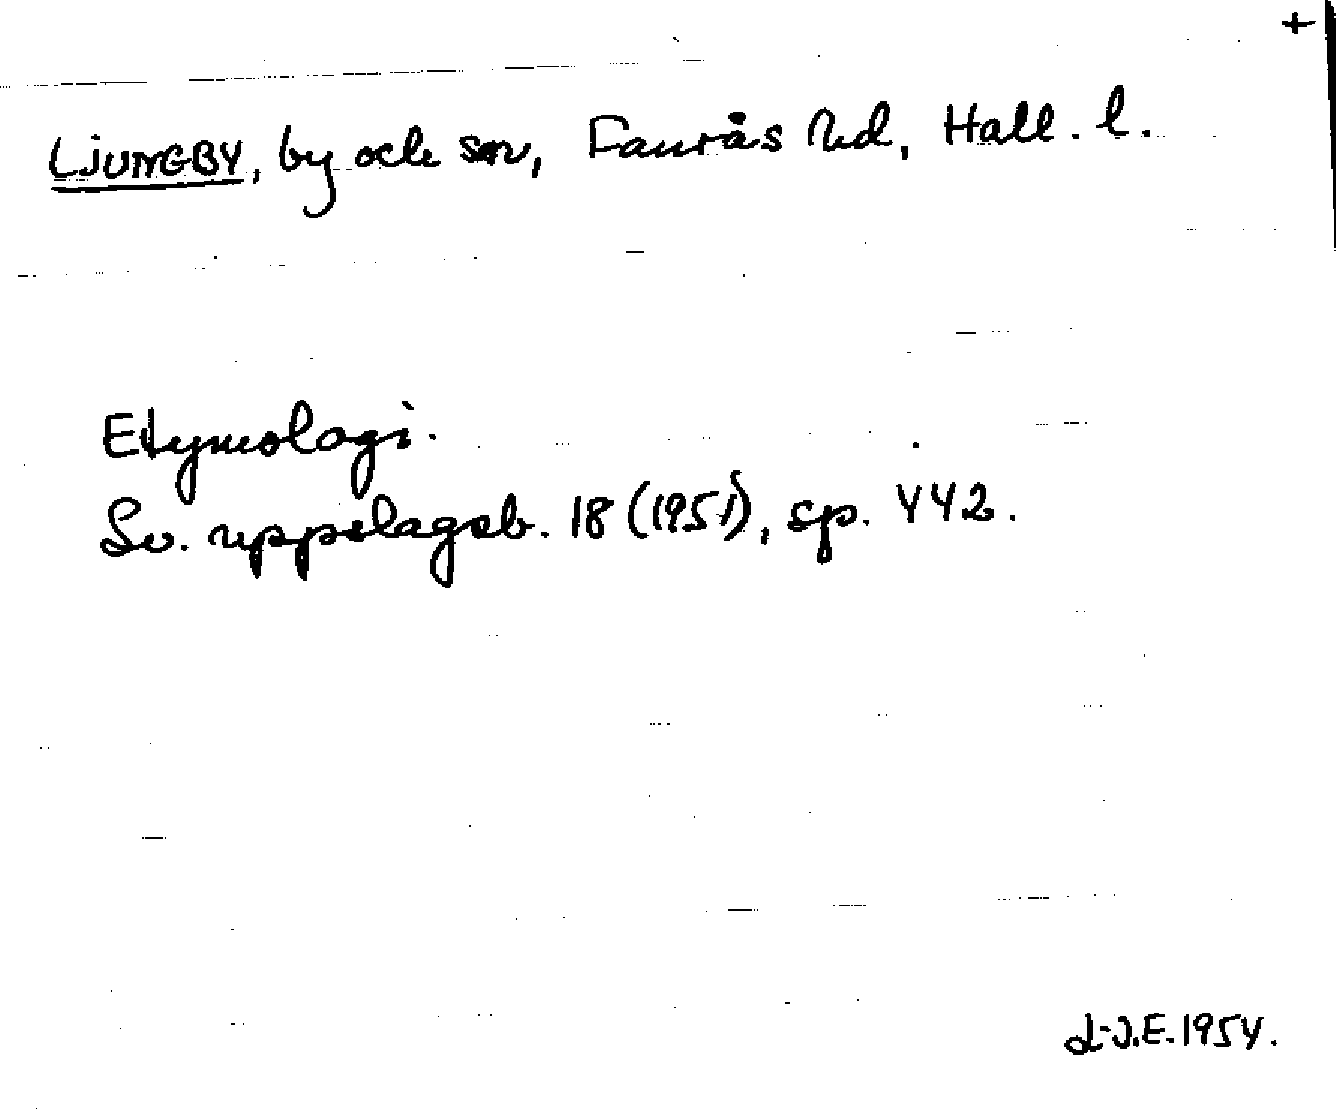 +
LJUNGBY, by och sn, Faurås hd, Hall. l.
Etymologi.
Sv. uppslagsb. 18 (1951), sp. 442.
L-J.E. 1954.